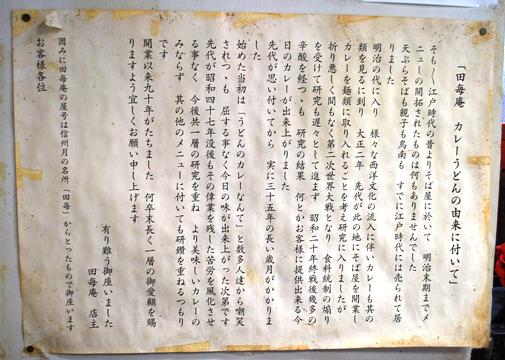 「田毎庵 カレーうどんの由来に付いて」
そも〳〵江戸時代の昔よりそば屋に於いて 明治末期までメ
ニューの開拓されたものは何もありませんでした
天ぷらそばも親子も鳥南も すでに江戸時代には売られて居
りました
明治の代に入り 様々な西洋文化の流入に伴いカレーも其の
類を見るに到り 大正二年 先代が此の地にそば屋を開業し
カレーを麺類に取り入れることを考え研究に入りましたが
折り悪しく間もなく第二次世界大戦となり 食料統制の煽り
を受けて研究も遅々として進まず 昭和二十年終戦後幾多の
辛酸を経つゝも 研究の結果 何とかお客様に提供出来る今
日のカレーが出来上がりました
先代が思い付いてから 実に三十五年の長い歳月がかかりま
した
始めた当初は「うどんのカレーなんて」と数多人達から嘲笑
されつゝも 屈する事なく今日の味が出来上がった次第です
先代が昭和四十七年没後もその偉業を残した苦労を風化させ
る事なく 今後共一層の研究を重ね より美味しいカレーの
みならず 其の他のメニューに付いても研鑽を重ねるつもり
です
開業以来九十年がたちました 何卒末長く一層の御愛顧を賜
りますよう宜しくお願い申し上げます
有り難う御座いました
田毎庵 店主
お客様各位
因みに田毎庵の屋号は信州月の名所「田毎」からとったもので御座います